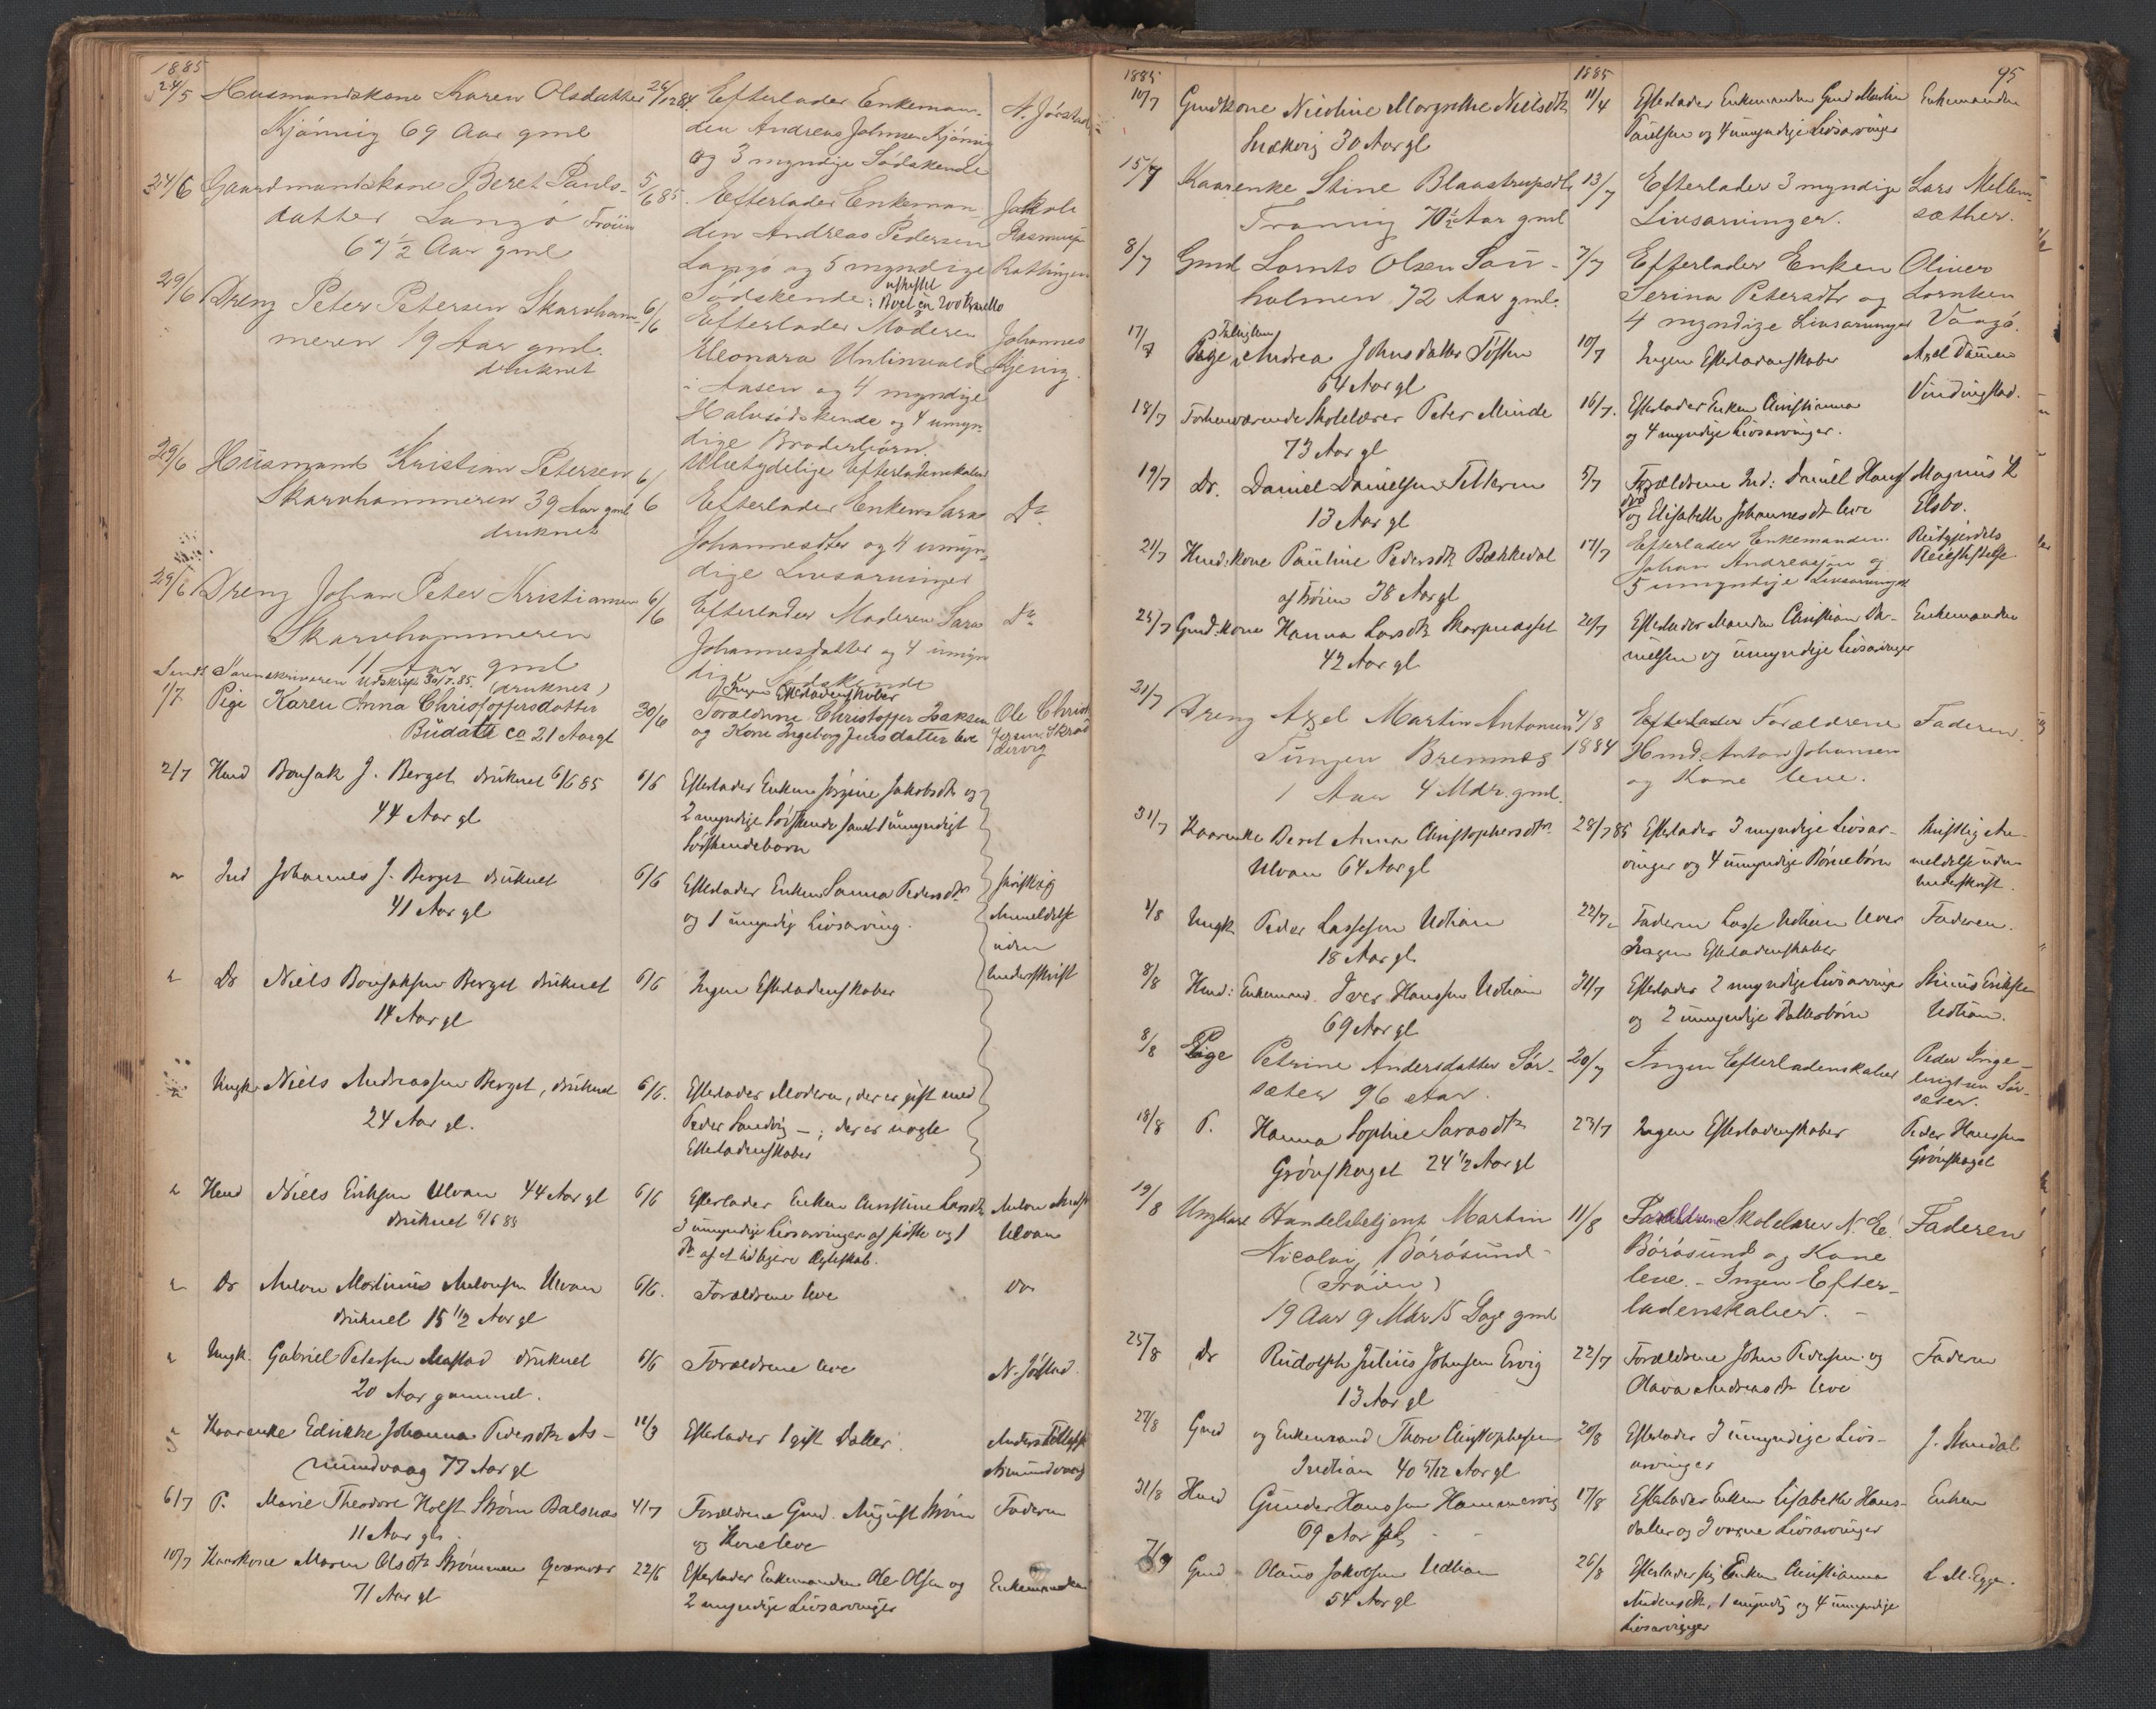 1885
24/5 Husmandskone Karen Olsdatter 24/12 84 Efterlader Enkeman- N. Jørstad
Kjønnig 69 Aar gml den Andreas Johnsen Kjønnig
og 3 myndige Sødskende
24/6 Gaardmandskone Beret Pauls- 5/6 85. Efterlader Enkeman- Jakob
datter Langø Frøien den Andreas Pedersen Rasmus
67 1/2 Aar gml Langø og 5 myndige
Sødskende:
29/6 Dreng Peter Petersen Skarvham- 6/6 Efterlader Moderen Johannes
meren 19 Aar gml. Eleonara
druknet i Aasen og 4 myndige
Halvsødskende og 4 umyn-
dige Broderbørn.
Ubetydelige Efterladenskaber
29/6 Husmand Kristian Petersen 6/6 Efterlader Enken Sara Do
Skarvhammeren 39 Aar gml Johannesdtr og 4 umyn-
druknet dige Livsarvinger
29/6 Dreng Johan Peter Kristiansen 6/6 Efterlader Moderen Sara Do
Skarvhammeren Johannesdatter og 4 umyn
11 Aar gml dige Sødskende
Sendt Sorenskriveren Udskrift 30/7.85. (druknet) Ingen Efterladenskaber
1/7 Pige Karen Anna Christoffersdatter 30/6 Forældrene Christoffer Isaksen Ole Christ
Budals ca 21 Aar gl og Kone Ingeborg Jensdatter leve
2/7 Hmd Bonsak J. Berget druknet 6/6 85 6/6 Efterlader Enken Jakobsdtr og
44 Aar gl 2 myndige Sødskende samt 1 umyndigt
Sødskendebarn
Ind Johannes J. Berget druknet 6/6 Efterlader Enken Sanna Pedersdtr skriftlig
41 Aar gl og 1 umyndig Livsarving. Anmeldelse
uden
Dr Niels Bonsaksen Berget druknet 6/6 Ingen Efterladenskaber Underskrift
14 Aar gl
Ungk. Niels Andreassen Berget, druknet 6/6. Efterlader Moderen, der er gift med
24 Aar gl. Peder Sandvig –; der er nogle
Efterladenskaber
Hmd Niels Eriksen Ulvan 44 Aar gl 6/6 Efterlader Enken Christine Larsdtr Anton
druknet 6/6 85 3 umyndige Livsarvinger af sidste og 1 Ulvan
Do af et tidligere Ægteskab.
Dr Anton Martinus Antonsen Ulvan 6/6. Forældrene leve Do
druknet 15 1/2 Aar gl
Ungk. Gabriel Petersen Mastad druknet 6/6 Forældrene leve N. Jørstad.
20 Aar gammel.
Kaarenke Edrikke Johanna Pedersdtr As- 11/3 Efterlader 1 gift Datter. Anders
mundvaag 77 Aar gl Asmundvaag
6/7 P. Marie Theodore Holst Strøm Balsnæs 4/7 Forældrene Gmd. August Strøm Faderen
11 Aar gl. og Kone leve
10/7 Kaarkone Maren Olsdtr Strømmen Qværnvær 22/6 Efterlader Enkemanden Ole Olsen og Enkemanden
71 Aar gl 2 myndige Livsarvinger
1885 1885 95
10/7 Gmdkone Nicoline Margrethe Nielsdtr 11/4 Efterlader Enkemanden Gmd Martin Enkemanden
30 Aar gl Paulsen og 4 umyndige Livsarvinger
15/7 Kaarenke Stine Blaastrupsdtr 13/7 Efterlader 3 myndige Lars Mellem-
70 1/2 Aar gml Livsarvinger. sæther.
8/7 Gmd Lornts Olsen Sau- 3/7 Efterlader Enken Oliver
holmen 72 Aar gml. Serina Petersdtr og Lorntsen
4 myndige Livsarvinger Vaagø.
17/7 Pige Andrea Johnsdatter Toften 10/7 Ingen Efterladenskaber Axel
64 Aar gl Vindingstad.
18/7 Forhenværende Skolelærer Peter Minde 16/7. Efterlader Enken Christianna
73 Aar gl og 4 myndige Livsarvinger.
19/7 Dr. Daniel Danielsen Titteren 5/7 Forældrene Ind: Daniel Hans Magnus H
13 Aar gl og Elisabeth Johannesdtr leve Elsbo.
21/7 Hmd:kone Pauline Pedersdtr Bækkedal 17/7 Efterlader Enkemanden
af Frøien 38 Aar gl Johan Andreassen og
5 umyndige Livsarvinger
25/7 Gmd:kone Hanna Larsdtr Skarpnæsset 20/7 Efterlader Manden Christian Da- Enkemanden
42 Aar gl nielsen og umyndige Livsarvinger
31/7 Dreng Axel Martin Antonsen 4/8 1884 Efterlader Forældrene Faderen.
Tungen Bremnæs Hmd Anton Johansen
1 Aar 4 Mdr. gml. og Kone leve.
31/7 Kaarenke Beret Anna Christophersdtr 28/7 85 Efterlader 3 myndige Livsar- skriftlig An-
Ulvan 64 Aar gl vinger og 4 umyndige Børnebørn meldelse uden
Underskrift.
4/8 Ungk Peder Lassesen Udtian 22/7 Faderen Lasse Udtian lever Faderen.
18 Aar gl Ingen Efterladenskaber
8/8 Hmd: Enkemand. Iver Hanssen Udtian 31/7 Efterlader 2 myndige Livsarvinger Eriksen
69 Aar gl og 2 umyndige Datterbørn Udtian.
8/8 Pige Petrine Andersdatter Sør- 20/7 Ingen Efterladenskaber Peder Inge-
sæter 96 Aar. brigtsen Sør-
sæter.
18/8 P. Hanna Sophie Sarasdtr 23/7 Ingen Efterladenskaber Peder Hanssen
Grønskaget 24 1/2 Aar gl Grønskaget
19/8 Ungkarl Handelsbetjent Martin 11/8 Forældrene Skolelærer N. E. Faderen
Nicolai Børøsund Børøsund og Kone
(Frøien) leve. – Ingen Efter-
19 Aar 9 Mdr 15 Dage gml ladenskaber. –
25/8 Dr Rudolph Julius Johnsen Ervig 22/7 Forældrene John Pedersen og Faderen
13 Aar gl Olava Andreasdtr leve
27/8 Gmd og Enkemand Thore Christophersen 20/8 Efterlader 3 umyndige Livs- J. Mandal
Indtian 40 5/12 Aar gl arvinger
31/8 Hmd Gunder Hanssen Hammervig 17/8 Efterlader Enken Elisabeth Hans- Enken
69 Aar gl datter og 3 voxne Livsarvinger
7/9 Gmd Olaus Jakobsen Udtian 26/8 Efterlader sig Enken Christianna L. M. Egge.
54 Aar gl Andersdtr, 1 myndig og 4 umyndige
Livsarvinger